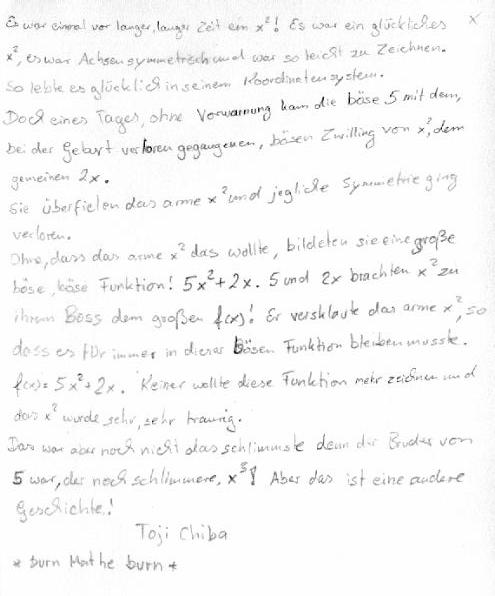 Es war einmal vor langer, langer Zeit ein x²! Es war ein glückliches x
x², es war Achsensymmetrisch und war so leicht zu Zeichnen.
So lebte es glücklich in seinem Koordinatensystem.
Doch eines Tages, ohne Vorwarnung kam die böse 5 mit dem,
bei der Geburt verloren gegangenen, bösen Zwilling von x², dem
gemeinen 2x.
Sie überfielen das arme x² und jegliche Symmetrie ging
verloren.
Ohne, dass das arme x² das wollte, bildeten sie eine große
böse, böse Funktion! 5x²+2x. 5 und 2x brachten x² zu
ihrem Boss dem großen f(x)! Er versklavte das arme x², so
dass es für immer in dieser bösen Funktion bleiben musste.
f(x)= 5x²+2x. Keiner wollte diese Funktion mehr zeichnen und
das x² wurde sehr, sehr traurig.
Das war aber noch nicht das schlimmste denn der Bruder von
5 war, der noch schlimmere, x⁵! Aber das ist eine andere
Geschichte!
Toji Chiba
* burn Mathe burn *